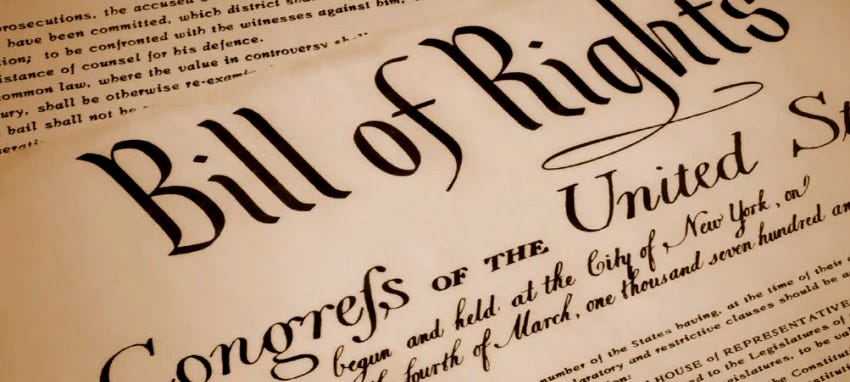 prosecutions, the accused
have been committed, which district
tion; to be confronted with the witnesses against him,
istance of counsel for his defence.
common law, where the value in controversy
ury, shall be otherwise re-exami
bail shall not be
Bill of Rights
Congreſs OF THE United St
begun and held at the City of New York, on
fourth of March, one thousand seven hundred an
number of the States having, at the time of their
laratory and restrictive clauses should be a
HOUSE of REPRESENTATIVE
to the Legislatures of
islatures, to be val
Constitut